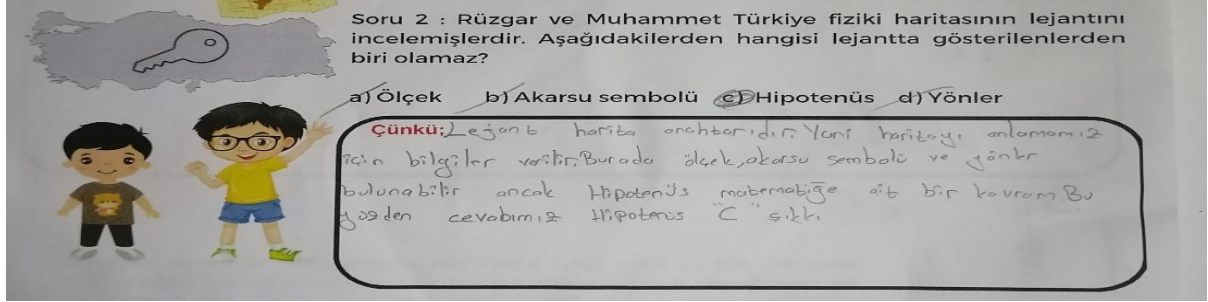 Soru 2 : Rüzgar ve Muhammet Türkiye fiziki haritasının lejantını
incelemişlerdir. Aşağıdakilerden hangisi lejantta gösterilenlerden
biri olamaz?
a) Ölçek b) Akarsu sembolü c) Hipotenüs d) Yönler
Çünkü; Lejant harita anahtarıdır. Yani haritayı anlamamız
için bilgiler verilir. Burada ölçek, akarsu sembolü ve yönler
bulunabilir ancak Hipotenüs matematiğe ait bir kavram. Bu
yüzden cevabımız Hipotenüs "C" şıkkı